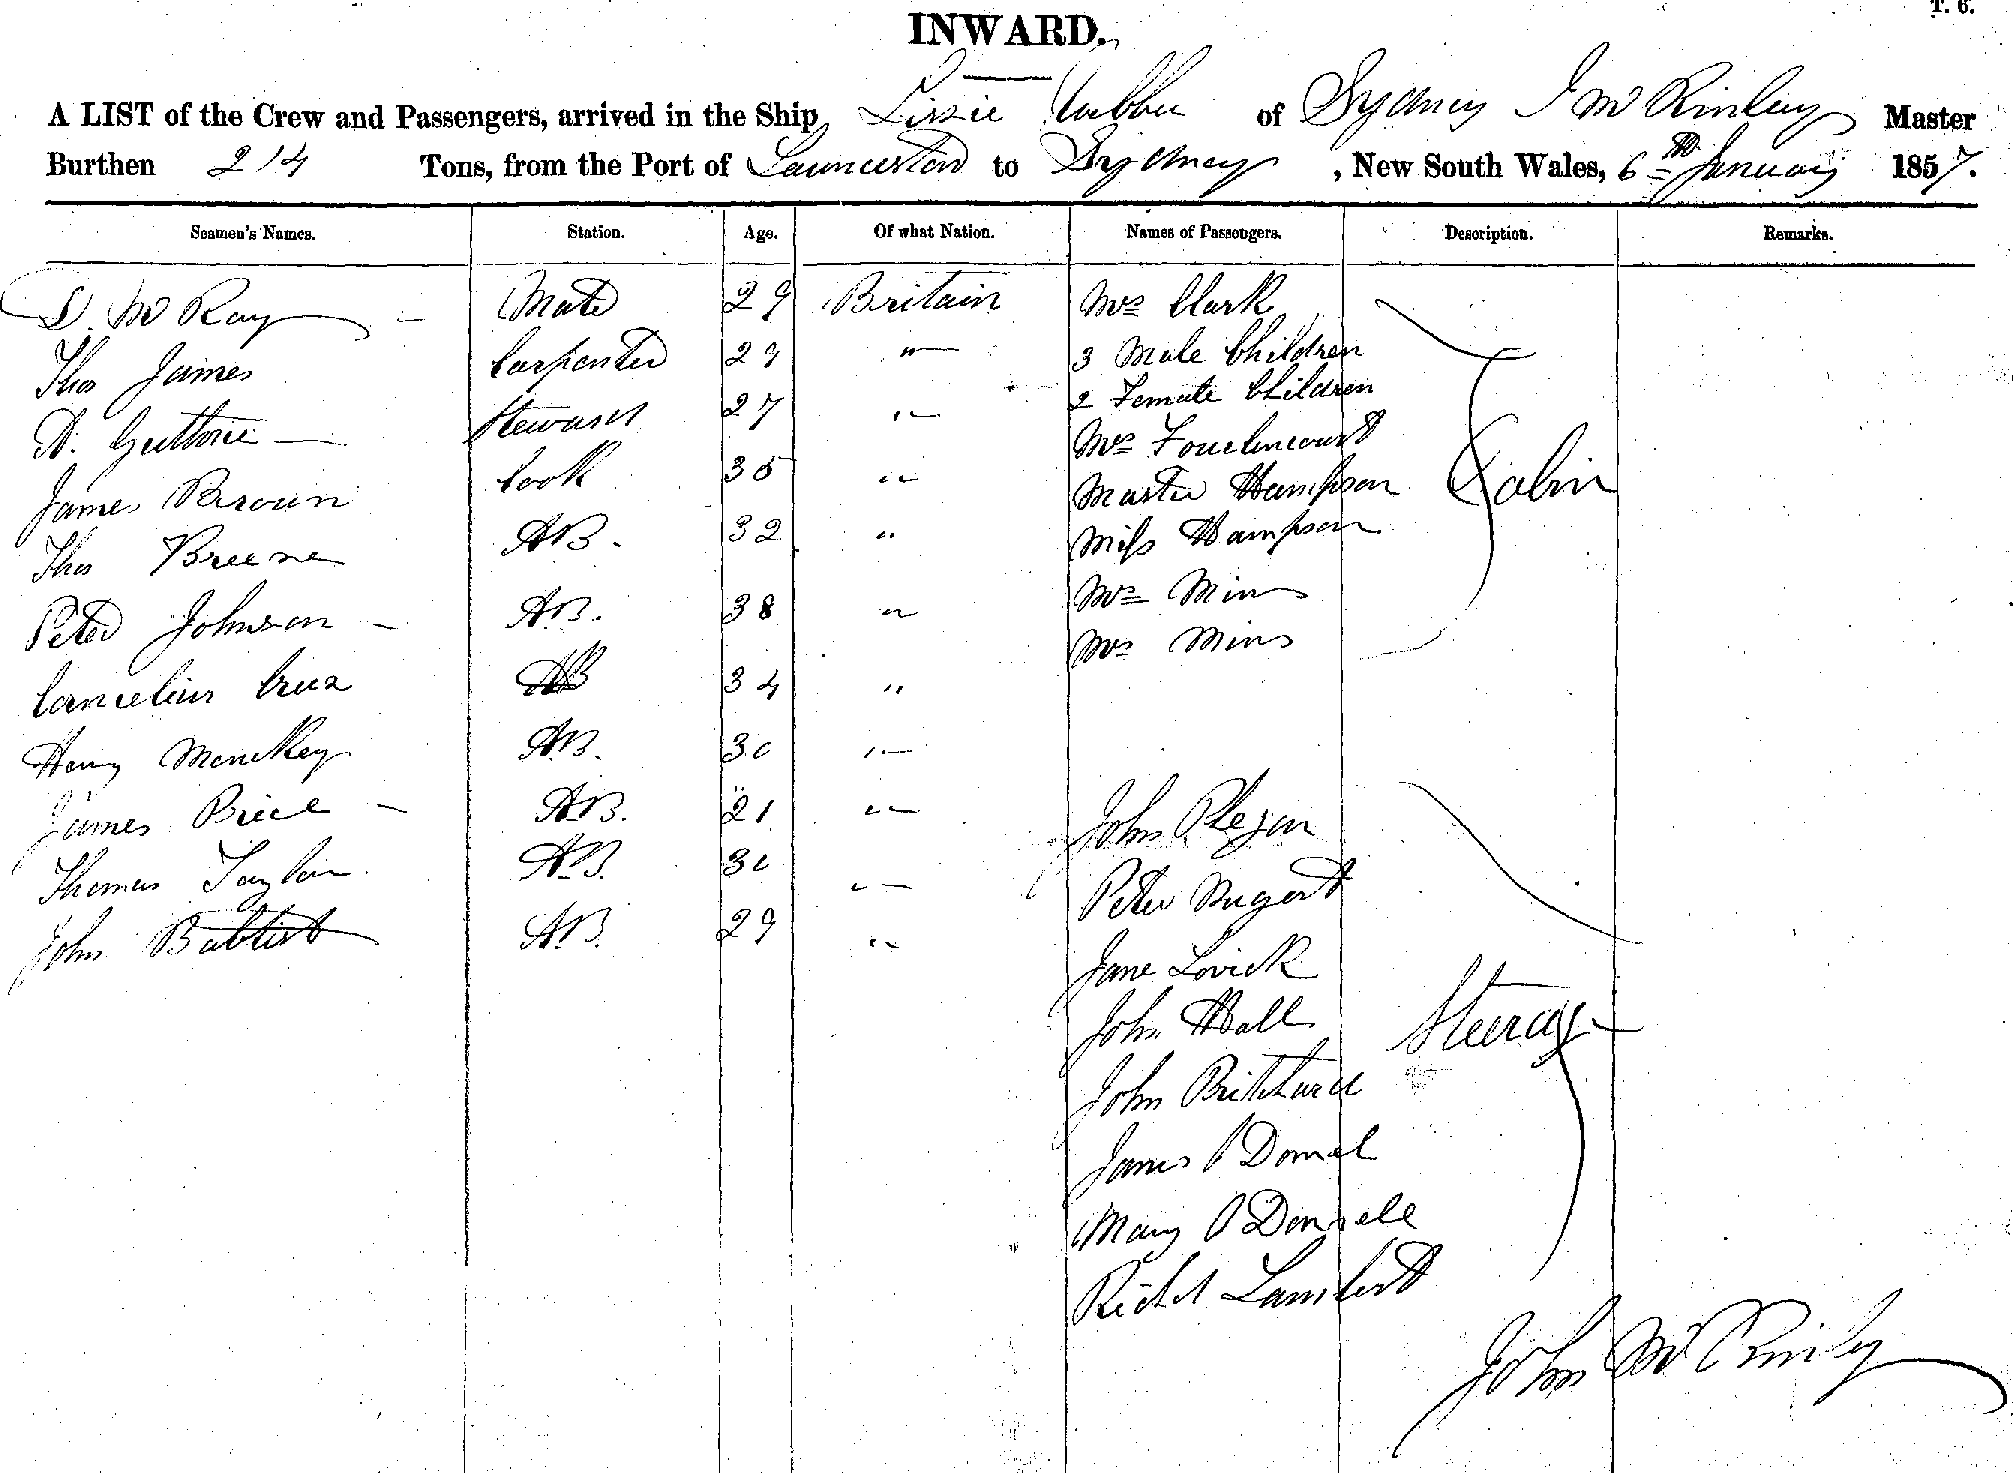 T. 6.
INWARD.
A LIST of the Crew and Passengers, arrived in the Ship Lizzie Webber of Sydney J McKinlay Master
Burthen 214 Tons, from the Port of Launceston to Sydney, New South Wales, 6th January 1857.
Seamen's Names. Station. Age. Of what Nation. Names of Passengers. Description. Remarks.
D. McKay Mate 29 Britain Mrs Clark
Thos James Carpenter 29 " 3 Male Children
2 Female Children
Guthrie Steward 27 " Mrs
James Brown Cook 35 " Master Hampson Cabin
Thos Breene AB. 32 " Miss Hampson
Peter Johnson AB. 38 " Mrs Mins
Cornelius AB 34 " Mrs Mins
Henry AB. 30 "
James AB. 21 " John
Thomas Taylor AB. 30 " Peter Nugent
John Babtist AB. 29 "
Jane Lovick
John Hall Steerag
John Britchard
James O Donnel
Mary O Donnell
Richd Lambert
John McKinlay